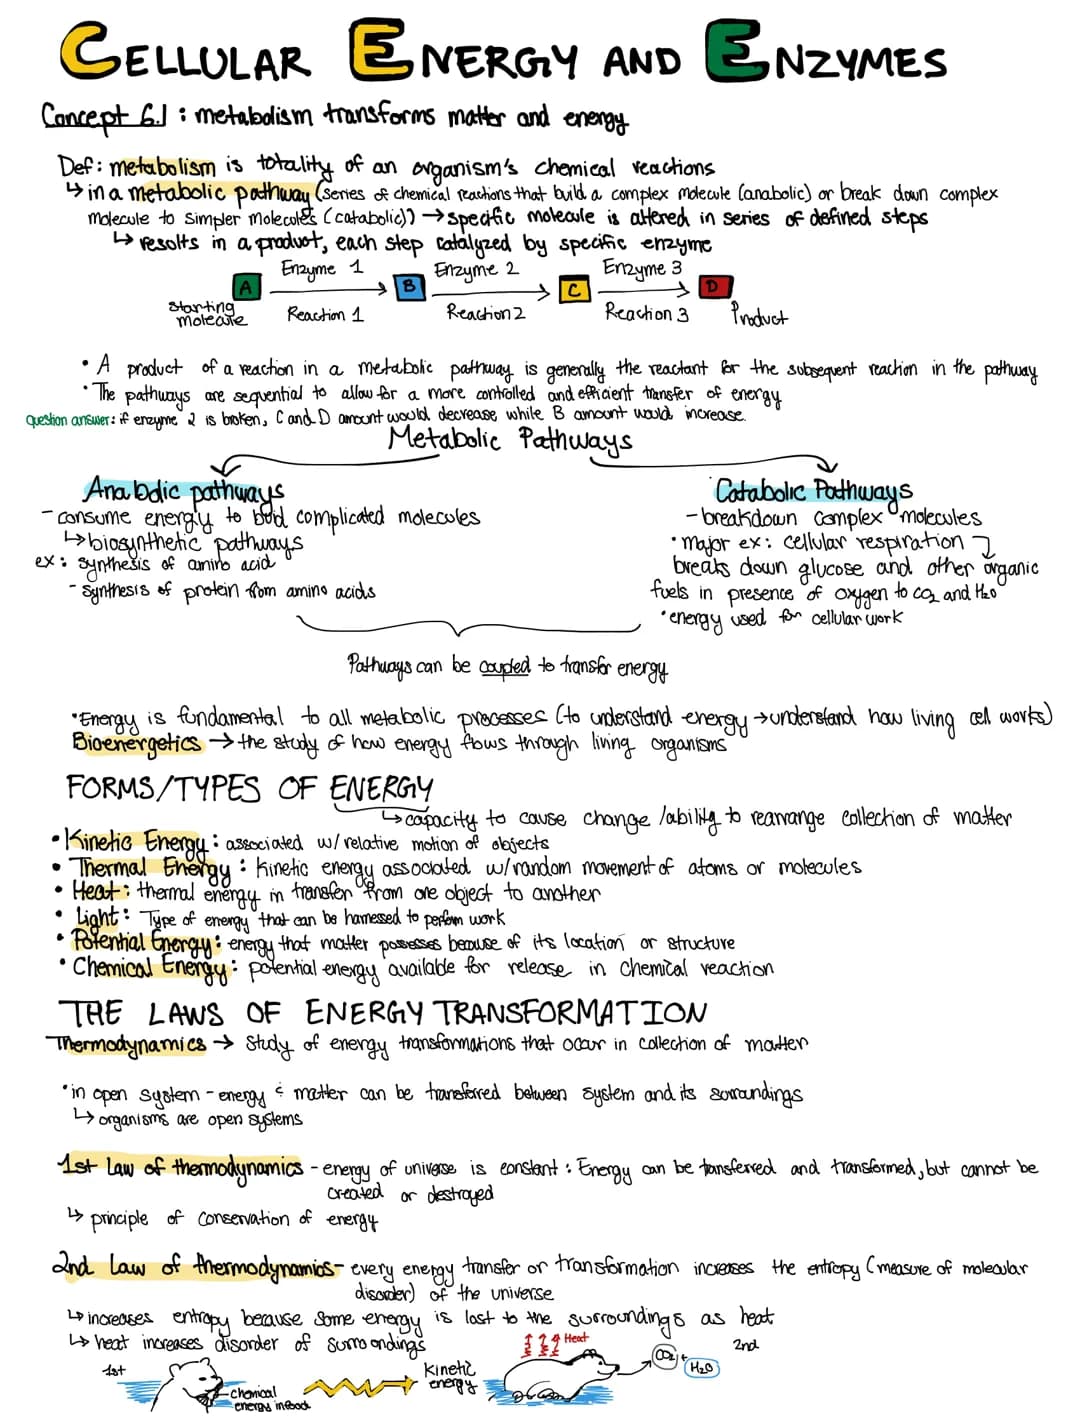 CELLULAR ENERGY AND ENZYMES
Concept 6.1 : metabolism transforms matter and energy
Def: metabolism is totality of an organism's chemical reactions
↳ in a metabolic pathway (series of chemical reactions that build a complex molecule (anabolic) or break down complex
molecule to simpler molecules (catabolic)) → specific molecule is altered in series of defined steps
↳ results in a product, each step catalyzed by specific enzyme
Enzyme 1 Enzyme 2 Enzyme 3
A B C D
starting molecule Reaction 1 Reaction 2 Reaction 3 Product
• A product of a reaction in a metabolic pathway is generally the reactant for the subsequent reaction in the pathway
• The pathways are sequential to allow for a more controlled and efficient transfer of energy
Question answer: if enzyme 2 is broken, C and D amount would decrease while B amount would increase.
Metabolic Pathways
Anabolic pathways
- consume energy to build complicated molecules
↳ biosynthetic pathways
ex: synthesis of amino acid
- synthesis of protein from amino acids
Catabolic Pathways
- breakdown complex molecules
• major ex: cellular respiration
breaks down glucose and other organic
fuels in presence of oxygen to CO2 and H2O
• energy used for cellular work
Pathways can be coupled to transfer energy
• Energy is fundamental to all metabolic processes (to understand energy → understand how living cell works)
Bioenergetics → the study of how energy flows through living organisms
FORMS/TYPES OF ENERGY
↳ capacity to cause change /ability to rearrange collection of matter
• Kinetic Energy: associated w/ relative motion of objects
• Thermal Energy: Kinetic energy associated w/random movement of atoms or molecules
• Heat: thermal energy in transfer from one object to another
• Light: Type of energy that can be harnessed to perform work
• Potential Energy: energy that matter possesses because of its location or structure
• Chemical Energy: potential energy available for release in chemical reaction
THE LAWS OF ENERGY TRANSFORMATION
Thermodynamics → study of energy transformations that occur in collection of matter
• in open system - energy & matter can be transferred between system and its surroundings
↳ organisms are open systems
1st law of thermodynamics - energy of universe is constant : Energy can be transferred and transformed, but cannot be
created or destroyed
↳ principle of conservation of energy
2nd law of thermodynamics - every energy transfer or transformation increases the entropy (measure of molecular
disorder) of the universe
↳ increases entropy because some energy is lost to the surroundings as heat
↳ heat increases disorder of surroundings
Heat
2nd
CO2 + H2O
1st
Kinetic
energy
chemical
energy in food